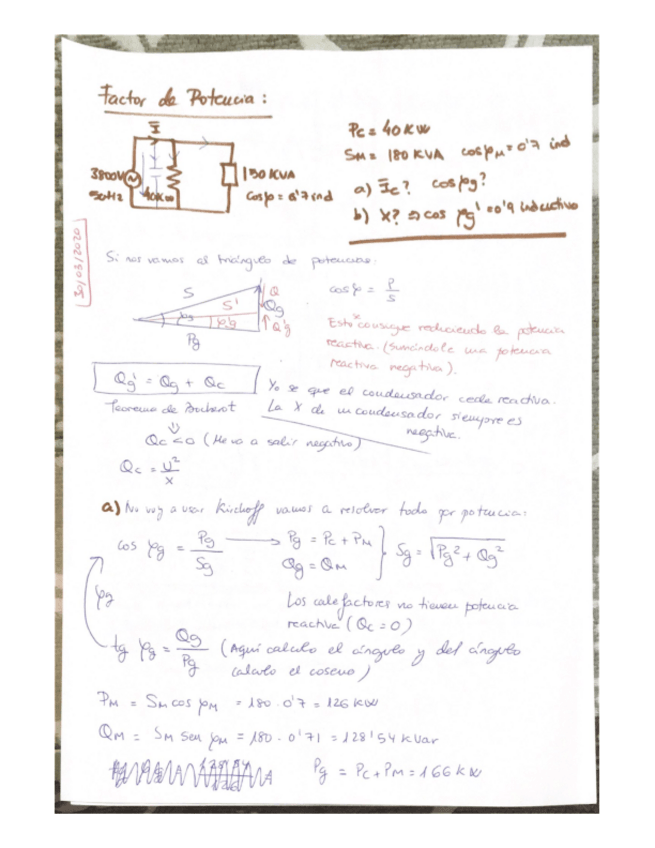 Factor de Potencia:
Ī
3800V
50Hz
40Kw
150 KVA
Cosφ = 0'7 ind
Pc = 40 KW
SM = 180 KVA cosφM = 0'7 ind
a) Īc? cosφg?
b) X? ⇒ cos φg' = 0'9 inductivo
30/03/2020
Si nos vamos al triángulo de potencias:
S
S'
φg
φ'g
Pg
Q
Qg
Q'g
cosφ = P/S
Esto consigue reduciendo la potencia
reactiva. (Sumándole una potencia
reactiva negativa).
Qg' = Qg + Qc
Teorema de Boucherot
Yo se que el condensador cede reactiva.
La X de un condensador siempre es
negativa.
⇓
Qc < 0 (Me va a salir negativo)
Qc = U²/X
a) No voy a usar Kirchoff vamos a resolver todo por potencia:
cos φg = Pg/Sg → Pg = Pc + PM
Qg = QM
Sg = √Pg² + Qg²
φg
Los calefactores no tienen potencia
reactiva (Qc = 0)
tg φg = Qg/Pg (Aquí calculo el ángulo y del ángulo
calculo el coseno)
PM = SM cos φM = 180 · 0'7 = 126 KW
QM = SM sen φM = 180 · 0'71 = 128'54 KVar
Pg = Pc + PM = 166 KW